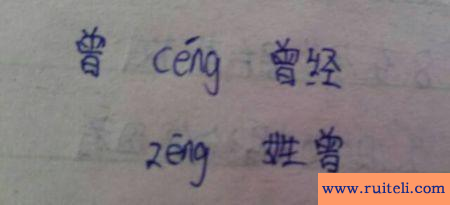 曾 céng 曾经
zēng 姓曾
www.ruiteli.com